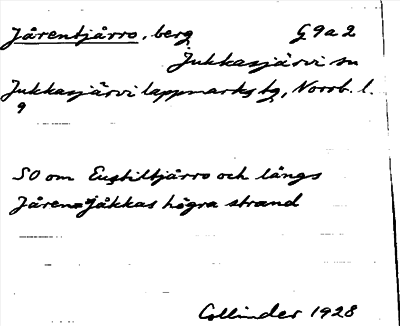 Jårentjårro, berg G9a2
Jukkasjärvi sn
Jukkasjärvi lappmarks tg, Norrb. l.
9
SO om Eustiltjårro och längs
Jårenejåkkas högra strand
Collinder 1928